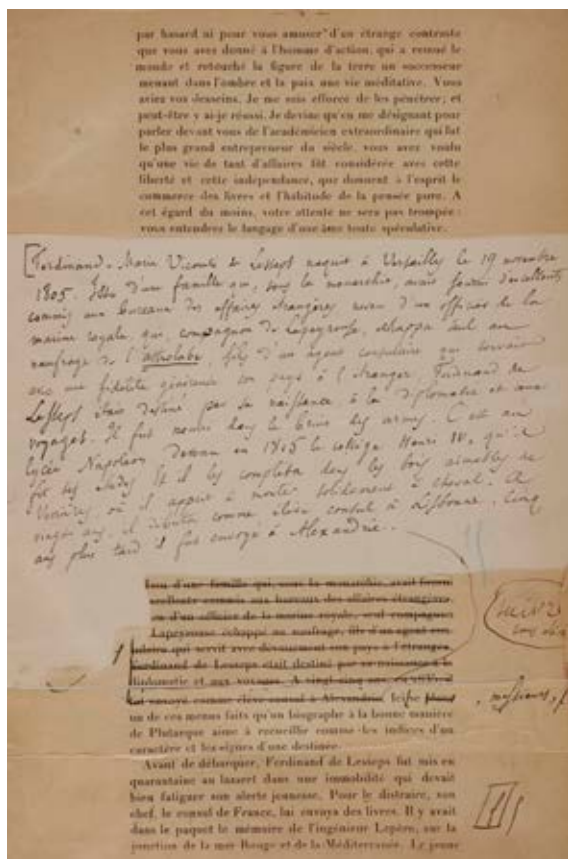 par hasard ni pour vous amuser d'un étrange contraste
que vous avez donné à l'homme d'action, qui a remué le
monde et retouché la figure de la terre un successeur
menant dans l'ombre et la paix une vie méditative. Vous
aviez vos desseins. Je me suis efforcé de les pénétrer; et
peut-être y ai-je réussi. Je devine qu'en me désignant pour
parler devant vous de l'académicien extraordinaire qui fut
le plus grand entrepreneur du siècle, vous avez voulu
qu'une vie de tant d'affaires fût considérée avec cette
liberté et cette indépendance, que donnent à l'esprit le
commerce des livres et l'habitude de la pensée pure. A
cet égard du moins, votre attente ne sera pas trompée:
vous entendrez le langage d'une âme toute spéculative.
[Ferdinand-Marie Vicomte de Lesseps naquit à Versailles le 19 novembre
1805. Issu d'une famille qui, sous la monarchie, avait fourni d'excellents
commis aux bureaux des affaires étrangères neveu d'un officier de la
marine royale, qui, compagnon de Lapeyrouse, échappa seul au
naufrage de l'astrolabe, fils d'un agent consulaire qui servait
avec une fidélité généreuse son pays à l'étranger, Ferdinand de
Lesseps était destiné par sa naissance à la diplomatie et aux
voyages. Il fut nourri dans le bruit des armes. C'est au
lycée Napoléon devenu en 1815 le collège Henri IV, qu'il
fit ses études Et il les compléta dans les bois aimables de
Verrières où il apprit à monter solidement à cheval. A
vingt ans, il débuta comme élève consul à Lisbonne. Cinq
ans plus tard il fut envoyé à Alexandrie.
Issu d'une famille qui, sous la monarchie, avait fourni
excellents commis aux bureaux des affaires étrangères,
d'un officier de la marine royale, seul compagnon
Lapeyrouse échappé au naufrage, fils d'un agent
qui servit avec dévouement son pays à l'étranger,
Ferdinand de Lesseps était destiné par sa naissance à la
diplomatie et aux voyages. A vingt-cinq ans
fut envoyé comme élève consul à Alexandrie.
un de ces menus faits qu'un biographe à la bonne manière
de Plutarque aime à recueillir comme les indices d'un
caractère et les signes d'une destinée.
messieurs,
Avant de débarquer, Ferdinand de Lesseps fut mis en
quarantaine au lazaret dans une immobilité qui devait
bien fatiguer son alerte jeunesse. Pour le distraire, son
chef, le consul de France, lui envoya des livres. Il y avait
dans le paquet le mémoire de l'ingénieur Lepère, sur la
jonction de la mer Rouge et de la Méditerranée. Le jeune